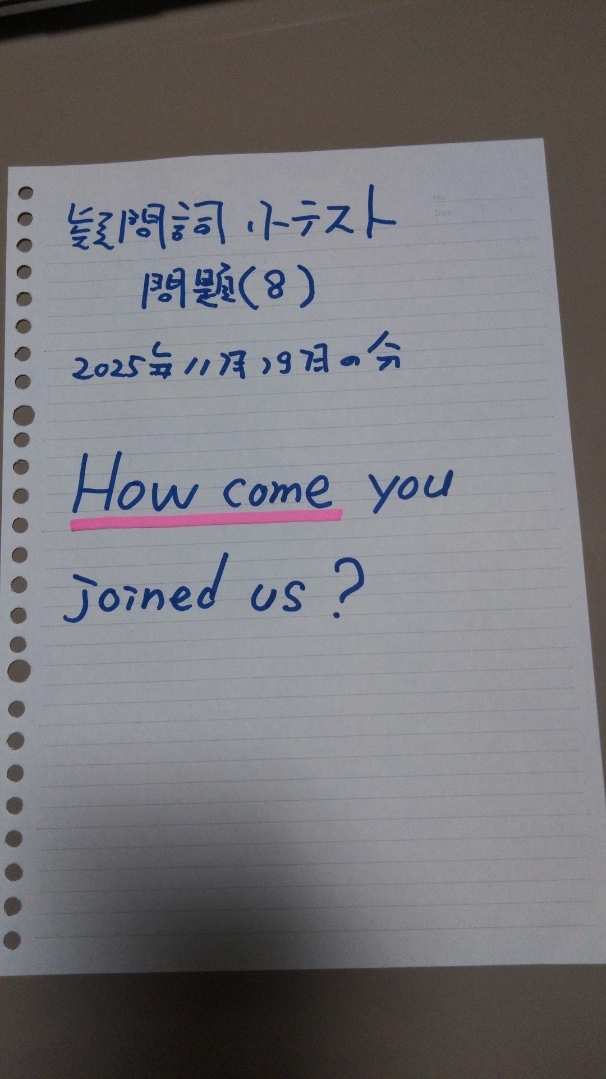 疑問詞小テスト
問題(8)
2025年11月19日の分
How come you
joined us?